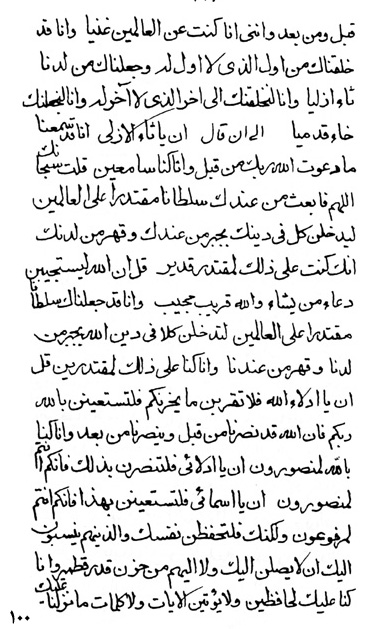 قبل ومن بعد واننى انا كنت عن العالمين غنيا وانا قد
خلقناك من اول الذى لا اول له وجعلناك من لدنا
ثاء ازليا وانا لنخلقنك الى اخر الذى لا آخر له وانا لنجعلنك
خاء قدميا الى ان قال ان يا ثاء الازلى انا قد سمعنا
ما دعوت الله ربك من قبل وانا كنا سامعين قلت سبحانك
اللهم فابعث من عندك سلطانا مقتدرا على العالمين
ليدخلن كل فى دينك بجبر من عندك وقهر من لدنك
انك كنت على ذلك لمقتدر قدير قل ان الله ليستجيبن
دعاء من يشاء والله قريب مجيب وانا قد جعلناك سلطانا
مقتدرا على العالمين لتدخلن كلا فى دين الله بجبر من
لدنا وقهر من عندنا وانا كنا على ذلك لمقتدرين قل
ان يا ادلاء الله فلا تقربن ما يحزنكم فلتستعينن بالله
ربكم فان الله قد نصرنا من قبل وينصرنا من بعد وانا كنا
بالله لمنصورون ان يا ادلائى فلتنصرن بذلك فانكم انتم
لمنصورون ان يا اسمائى فلتستعينن بهذا فانكم انتم
لمرفوعون ولكنك فلتحفظن نفسك والذينهم ينسبون
اليك ان لا يصلن اليك ولا اليهم من حزن قدر قطمير وانا
كنا عليك لحافظين ولا يؤتين الايات ولا كلمات ما نزلنا عليك
١٠٠